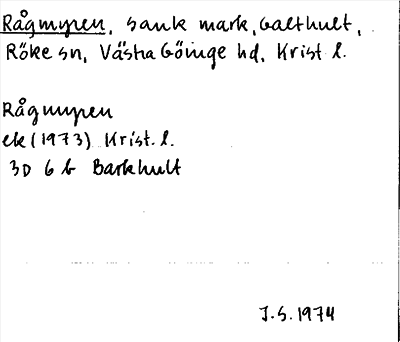 Rågmyren, sank mark, Galthult,
Röke sn, Västra Göinge hd, Krist l.
Rågmyren
ek (1973) Krist. l.
3D 6 b Barkhult
J.S. 1974